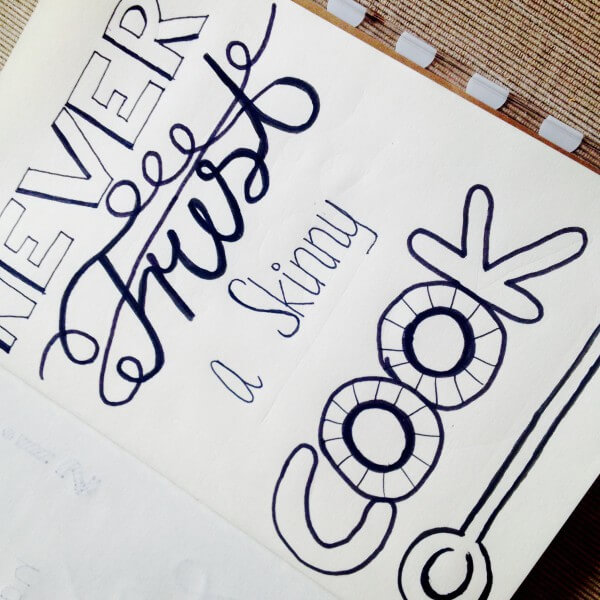 NEVER
Trust
a Skinny
COOK